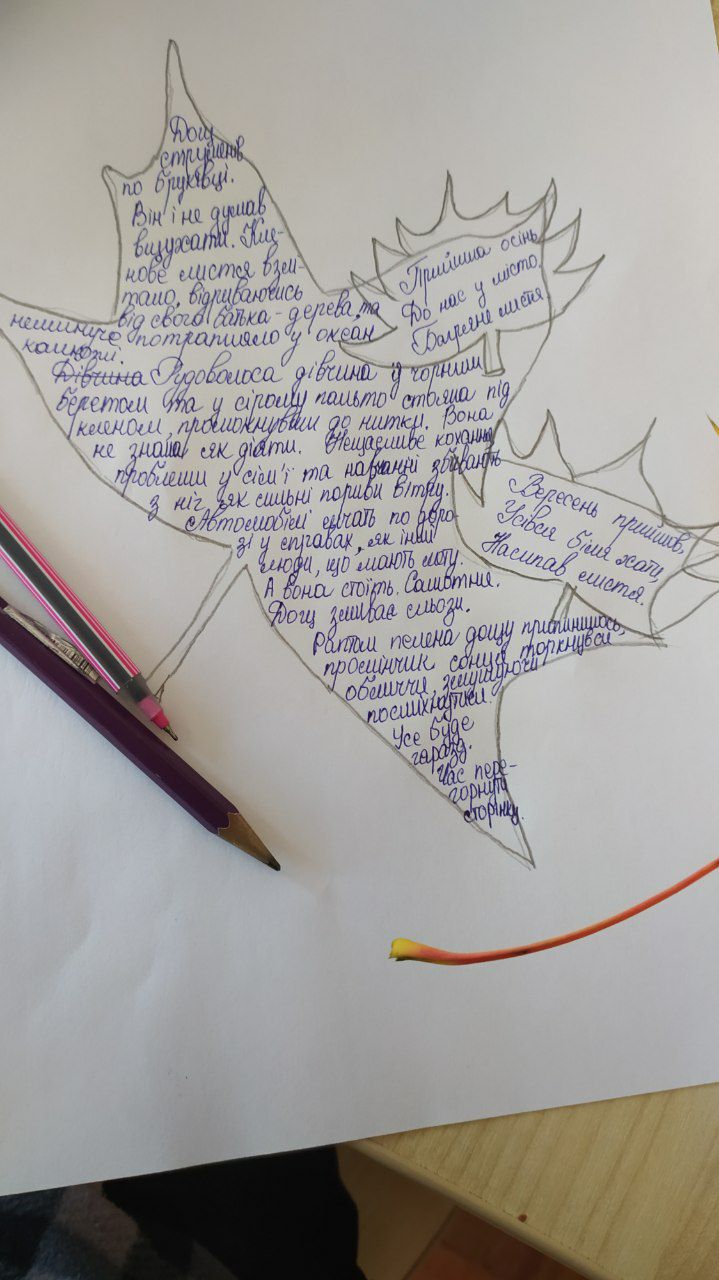 Дощ
струменів
по бруківці.
Він і не думав
вщухати. Кле-
нове листя взм-
тало, відриваючись
від свого батька-дерева, та
неминуче потрапляло у океан
калюжі.
Дівчина Рудоволоса дівчина у чорним
беретом та у сірому пальто стояла під
кленом, промокнувши до нитки. Вона
не знала як діяти. Нещасливе кохання,
проблеми у сім'ї та навчанні збивають
з ніг як сильні пориви вітру.
Автомобілі мчать по доро-
зі у справах, як інші
люди, що мають мету.
А вона стоїть. Самотня.
Дощ змиває сльози.
Раптом пелена дощу припинилась,
промінчик сонця торкнувся
обличчя, змушуючи
посміхнутися.
Усе буде
гаразд.
Час пере-
горнути
сторінку.
Прийшла осінь
До нас у місто
Багряне листя
Вересень прийшов,
Усівся біля хати,
Насипав листя.